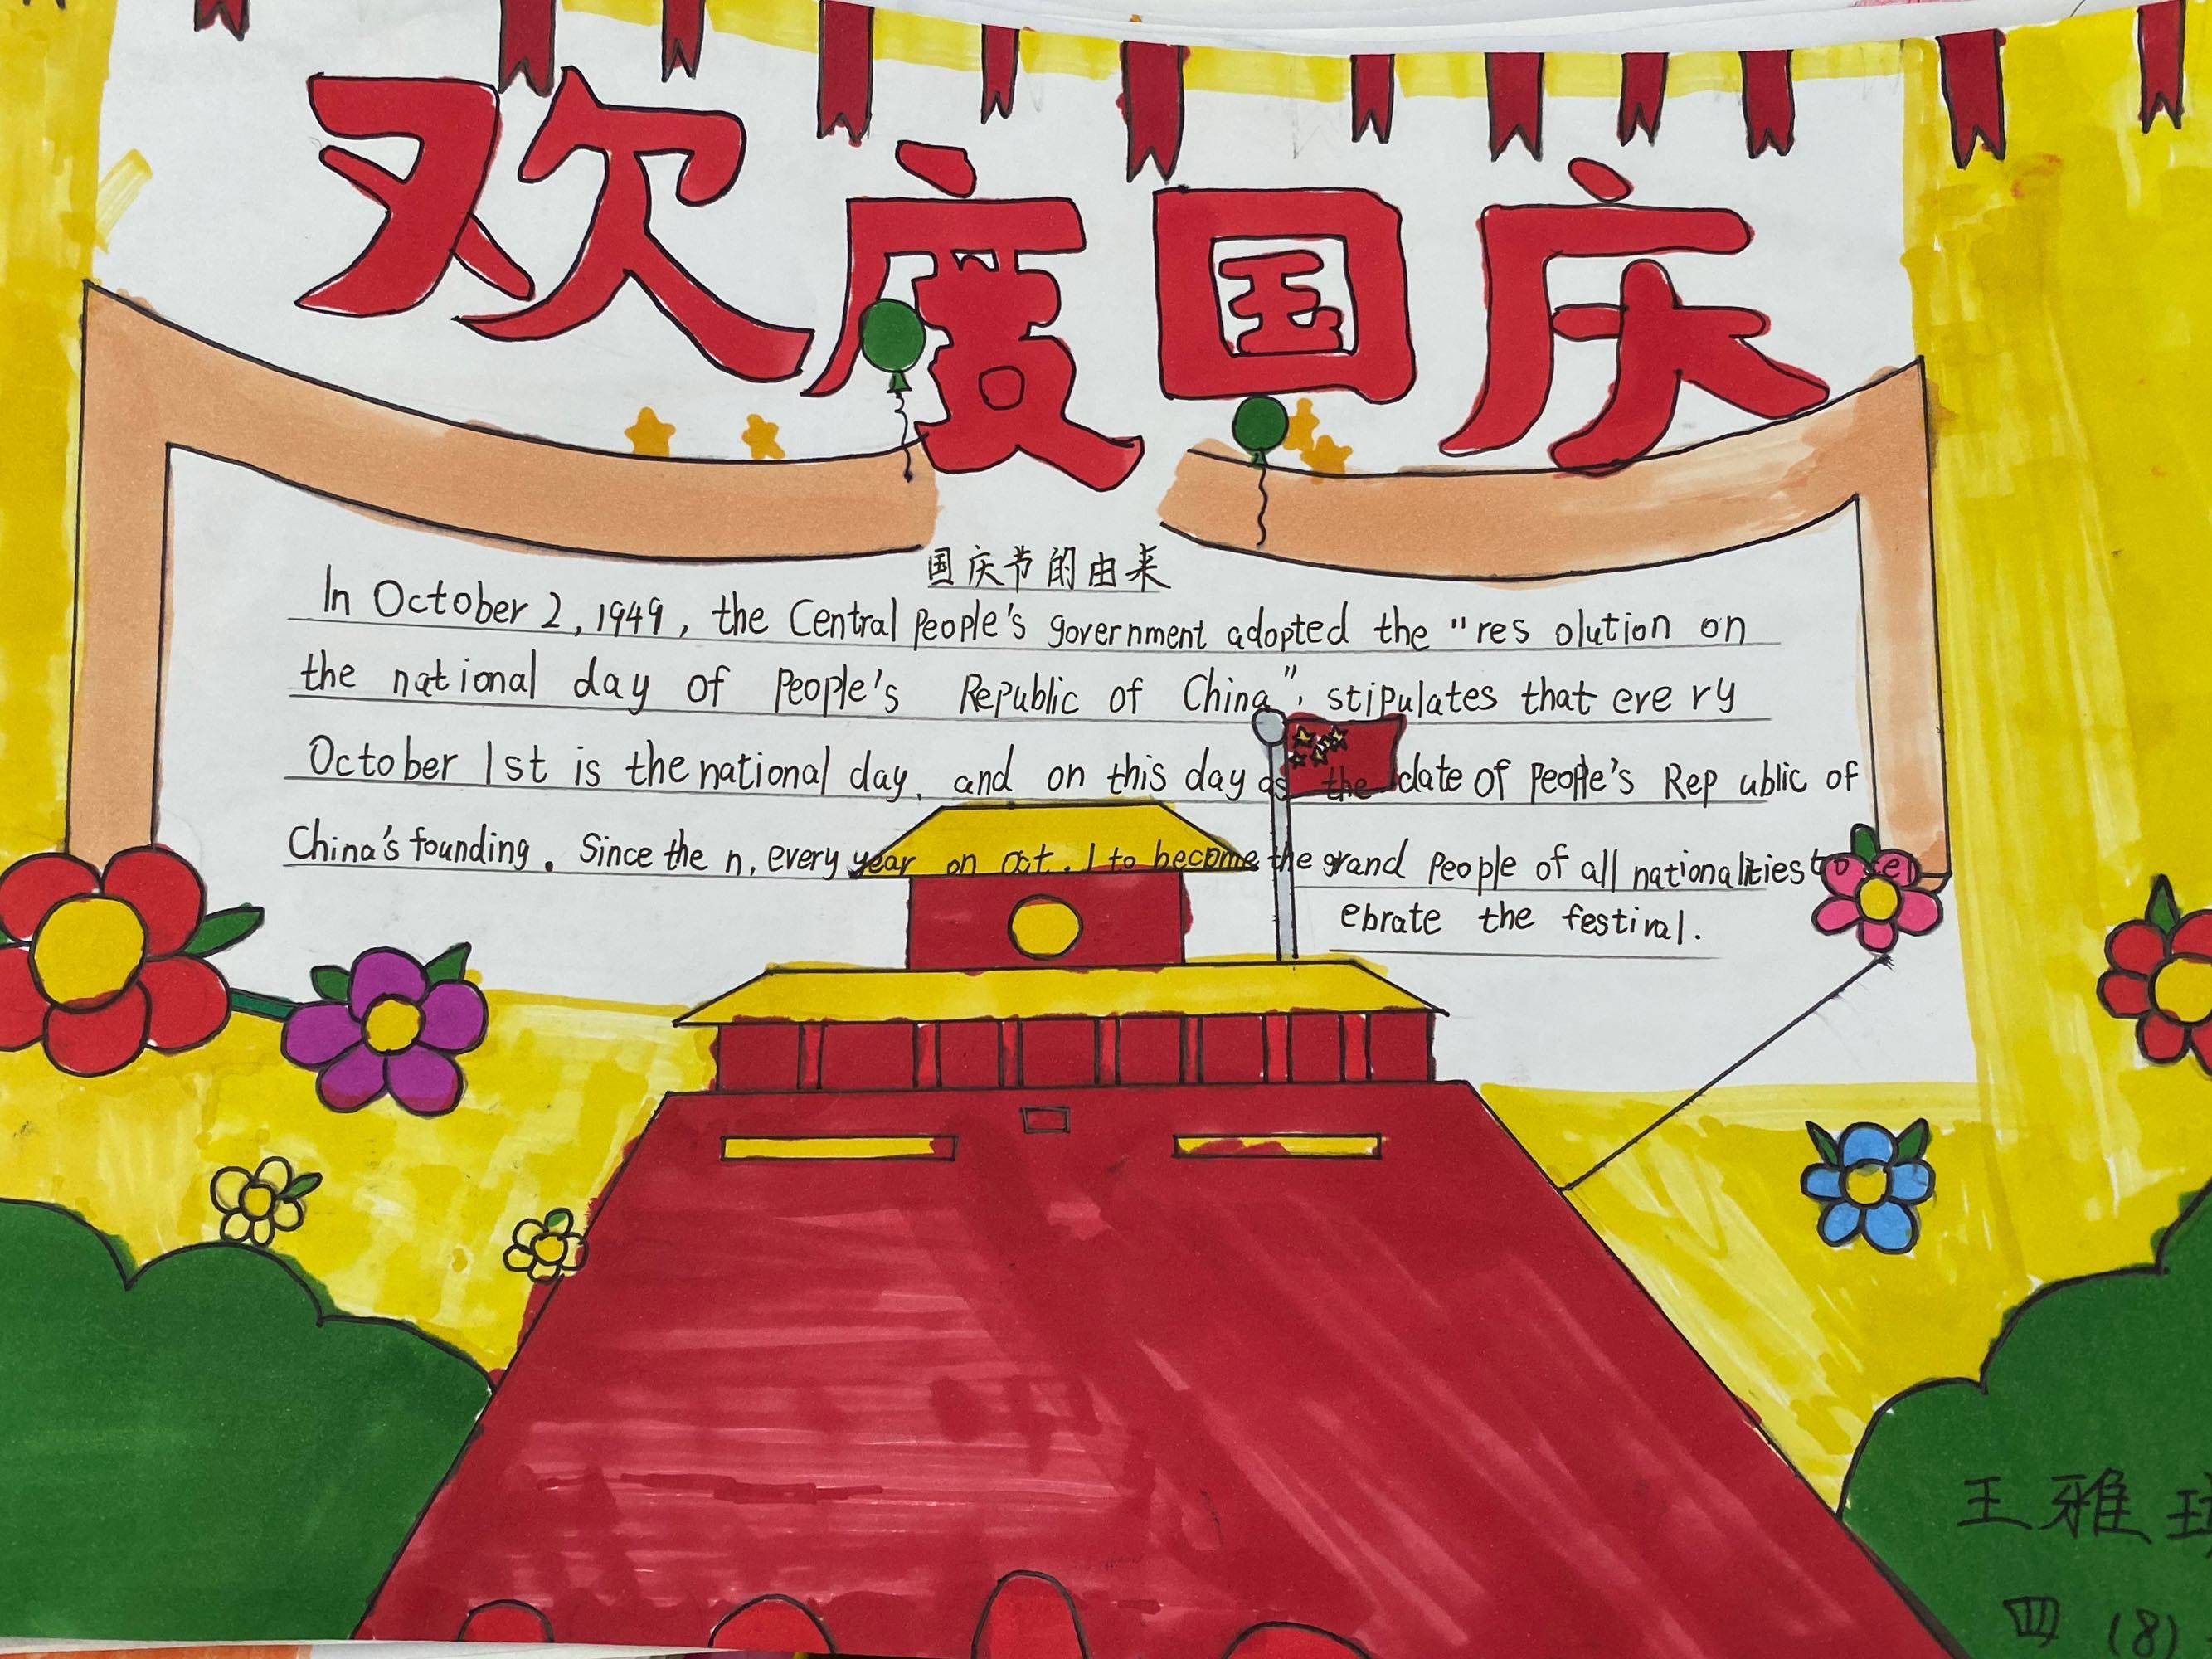 欢度国庆
国庆节的由来
In October 2, 1949, the Central People's government adopted the "res olution on
the national day of People's Republic of China", stipulates that every
October 1st is the national day, and on this day as the date of People's Republic of
China's founding. Since the n, every year on oct. 1 to become the grand People of all nationalities to cel
ebrate the festival.
王雅
四(8)